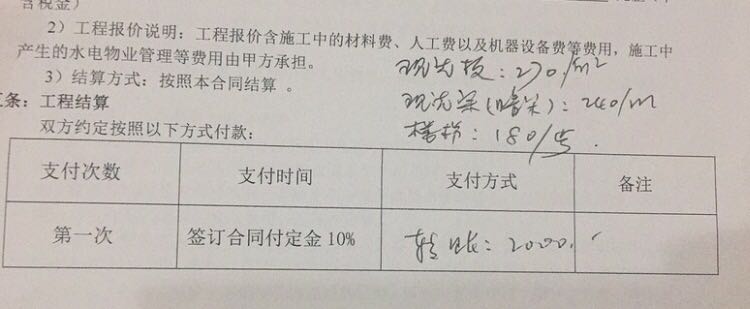 含税金）
2）工程报价说明：工程报价含施工中的材料费、人工费以及机器设备费等费用，施工中
产生的水电物业管理等费用由甲方承担。
3）结算方式：按照本合同结算 。
现浇板：270/m²
现浇梁(暗梁)：240/m
楼梯：180/步.
条：工程结算
双方约定按照以下方式付款：
支付次数 支付时间 支付方式 备注
第一次 签订合同付定金 10% 转账：2000.